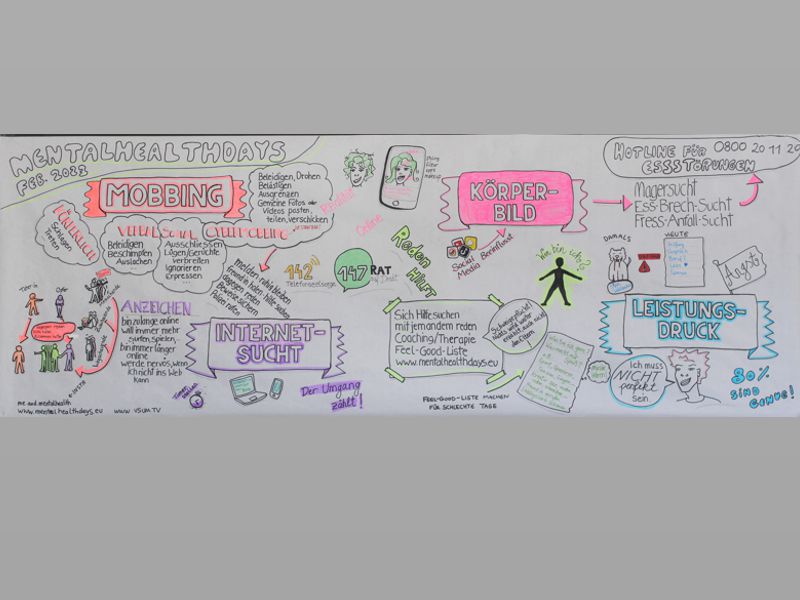 MENTALHEALTHDAYS
FEB. 2023
MOBBING
KÖRPERLICH
Schlagen
Treten
...
VERBAL
Beleidigen
Beschimpfen
Auslachen
...
SOZIAL
Ausschliessen
Lügen/Gerüchte
verbreiten
Ignorieren
Erpressen
...
CYBERMOBBING
Beleidigen, Drohen
Belästigen
Ausgrenzen
Gemeine Fotos oder
Videos posten,
teilen, verschicken
melden
ruhig bleiben
Hilfe suchen
dagegen reden
Beweise sichern
Polizei rufen
142
Telefonseelsorge
147
RAT
Täter:in
Opfer
ANZEICHEN
bin zu lange online
will immer mehr
surfen, spielen...
bin immer länger
online
werde nervös, wenn
ich nicht ins Web
kann
INTERNET-
SUCHT
Der Umgang
zählt!
me-and.mentalhealth
www.mentalhealthdays.eu
www.VSUM.TV
Realität
Online
Reden
Hilft
KÖRPER-
BILD
Social
Media
Beeinflusst
HOTLINE FÜR
ESSSTÖRUNGEN
0800 20 11 20
Magersucht
Ess-Brech-Sucht
Fress-Anfall-Sucht
Wie bin ich?
Sich Hilfe suchen
mit jemandem reden
Coaching/Therapie
Feel-Good-Liste
www.mentalhealthdays.eu
Schweigepflicht
Nichts wird weiter
erzählt auch nicht
den Eltern
FEEL-GOOD-LISTE MACHEN
FÜR SCHLECHTE TAGE
DAMALS
HEUTE
Angst
LEISTUNGS-
DRUCK
Ich muss
NICHT
perfekt
sein
80%
SIND
GENUG!